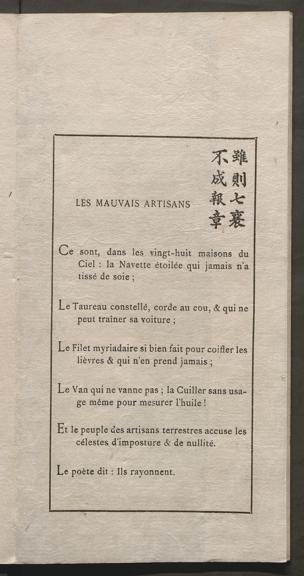 雖則七襄
不成報章
LES MAUVAIS ARTISANS
Ce sont, dans les vingt-huit maisons du
Ciel : la Navette étoilée qui jamais n'a
tissé de soie ;
Le Taureau constellé, corde au cou, & qui ne
peut traîner sa voiture ;
Le Filet myriadaire si bien fait pour coiffer les
lièvres & qui n'en prend jamais ;
Le Van qui ne vanne pas ; la Cuiller sans usa-
ge même pour mesurer l'huile !
Et le peuple des artisans terrestres accuse les
célestes d'imposture & de nullité.
Le poète dit : Ils rayonnent.